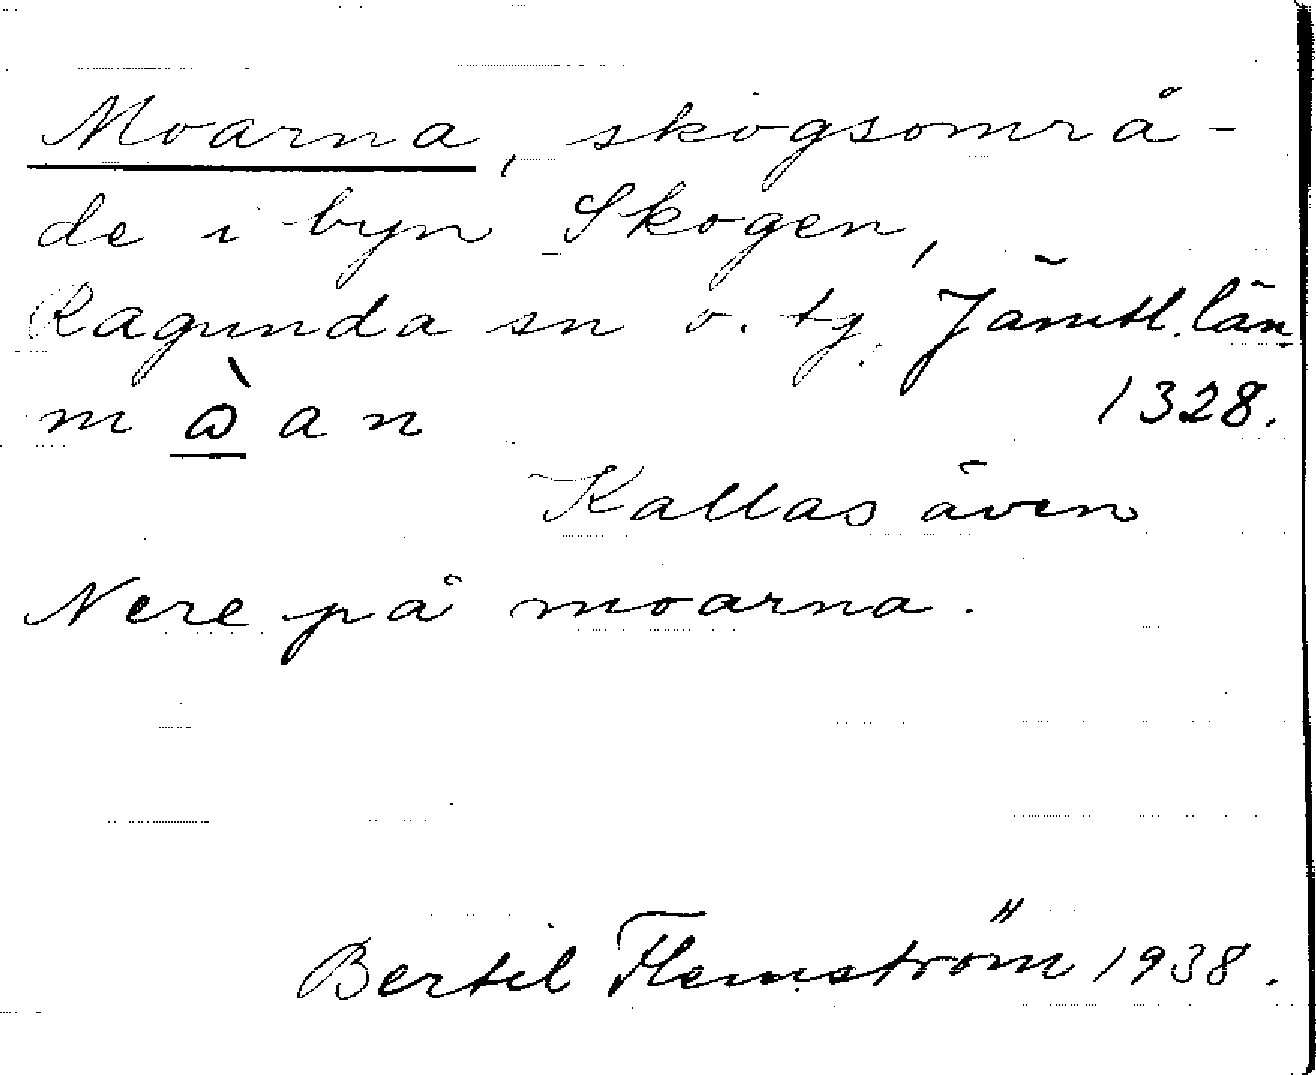 Moarna, skogsområ-
de i byn Skogen,
Ragunda sn o. tg. Jämtl. län
m ꙍ̀ a n 1328.
Kallas även
Nere på moarna.
Bertil Flemström 1938.